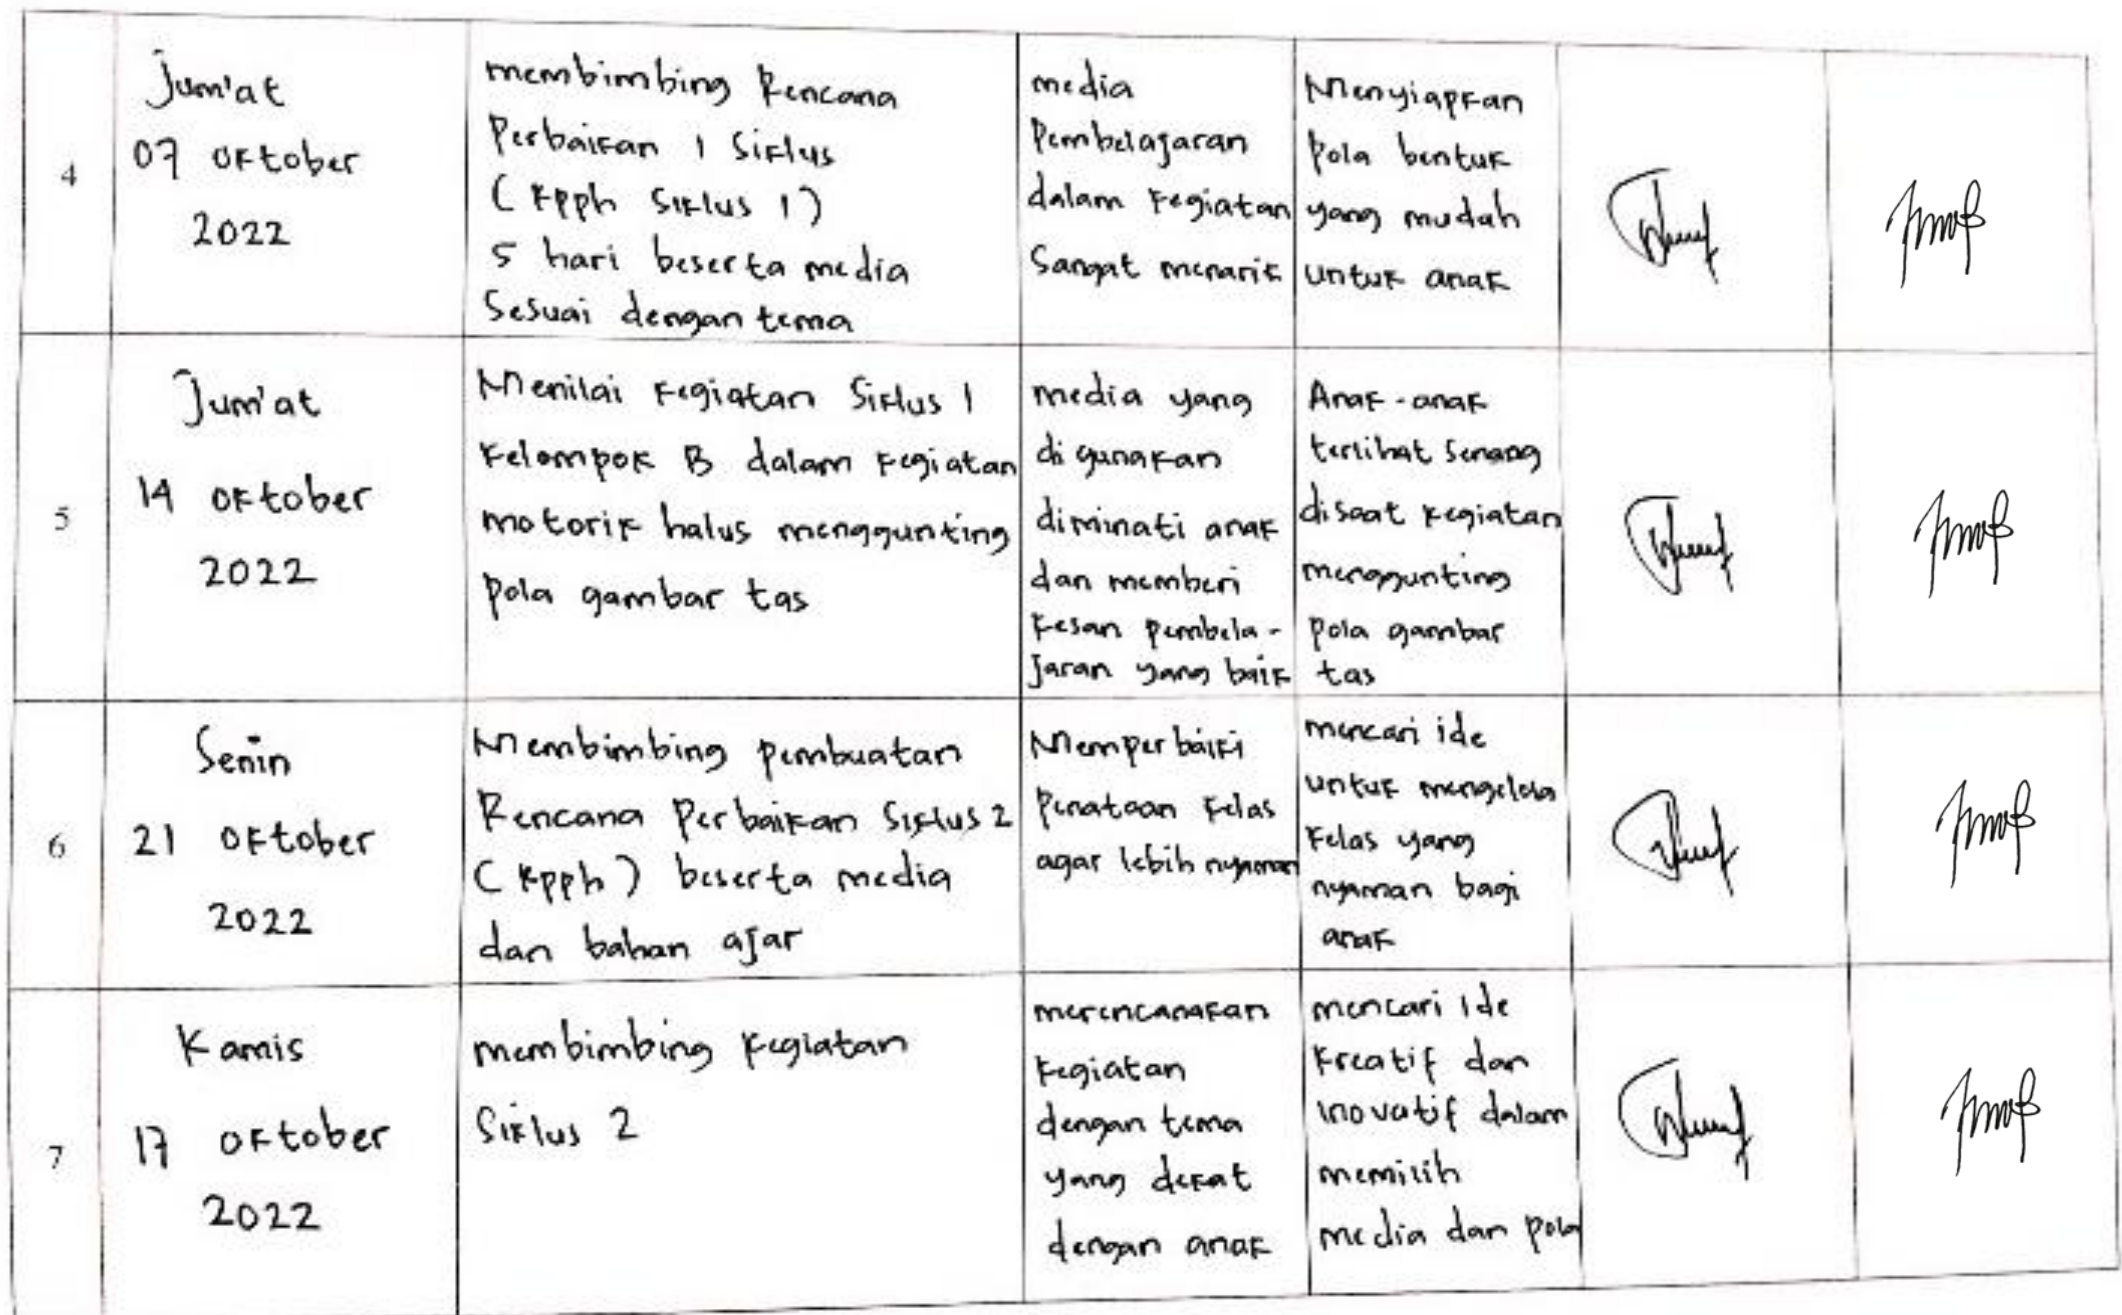 4
Jum'at
07 Oktober
2022
membimbing Rencana
Perbaikan 1 Siklus
(Rpph Siklus 1)
5 hari beserta media
Sesuai dengan tema
media
Pembelajaran
dalam kegiatan
Sangat menarik
Menyiapkan
Pola bentuk
yang mudah
untuk anak
5
Jum'at
14 Oktober
2022
Menilai kegiatan Siklus 1
Kelompok B dalam kegiatan
motorik halus menggunting
Pola gambar tas
media yang
di gunakan
diminati anak
dan memberi
kesan pembela-
jaran yang baik
Anak-anak
terlihat Senang
disaat kegiatan
menggunting
Pola gambar
tas
6
Senin
21 Oktober
2022
Membimbing pembuatan
Rencana Perbaikan Siklus 2
(Rpph) beserta media
dan bahan ajar
Memperbaiki
Penataan kelas
agar lebih nyaman
mencari ide
untuk mengelola
kelas yang
nyaman bagi
anak
7
Kamis
17 Oktober
2022
membimbing kegiatan
Siklus 2
merencanakan
kegiatan
dengan tema
yang dekat
dengan anak
mencari Ide
kreatif dan
inovatif dalam
memilih
media dan Pola